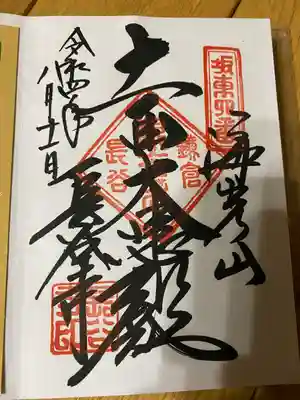 坂東四番
海光山
十一面大悲殿
鎌倉
長谷
令和四年
八月十一日
長谷寺